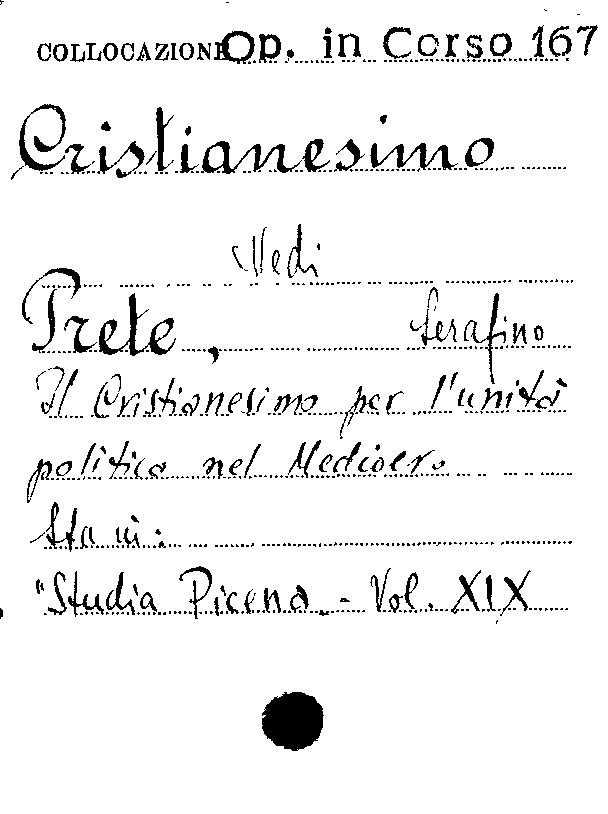 COLLOCAZIONE Op. in Corso 167
Cristianesimo
Vedi
Prete, Serafino
Il Cristianesimo per l'unità
politica nel Medioevo
Sta in:
"Studia Picena - Vol. XIX